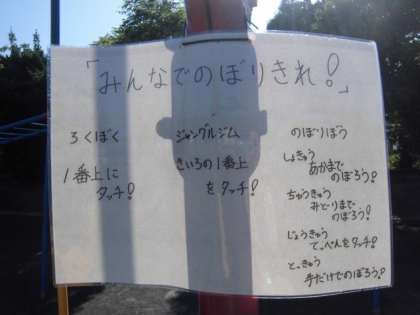 「みんなでのぼりきれ!」
ろくぼく
1番上に
タッチ!
ジャングルジム
きいろの1番上
をタッチ!
のぼりぼう
しょきゅう
あかまで
のぼろう!
ちゅうきゅう
みどりまで
のぼろう!
じょうきゅう
てっぺんをタッチ!
とっきゅう
手だけでのぼろう!